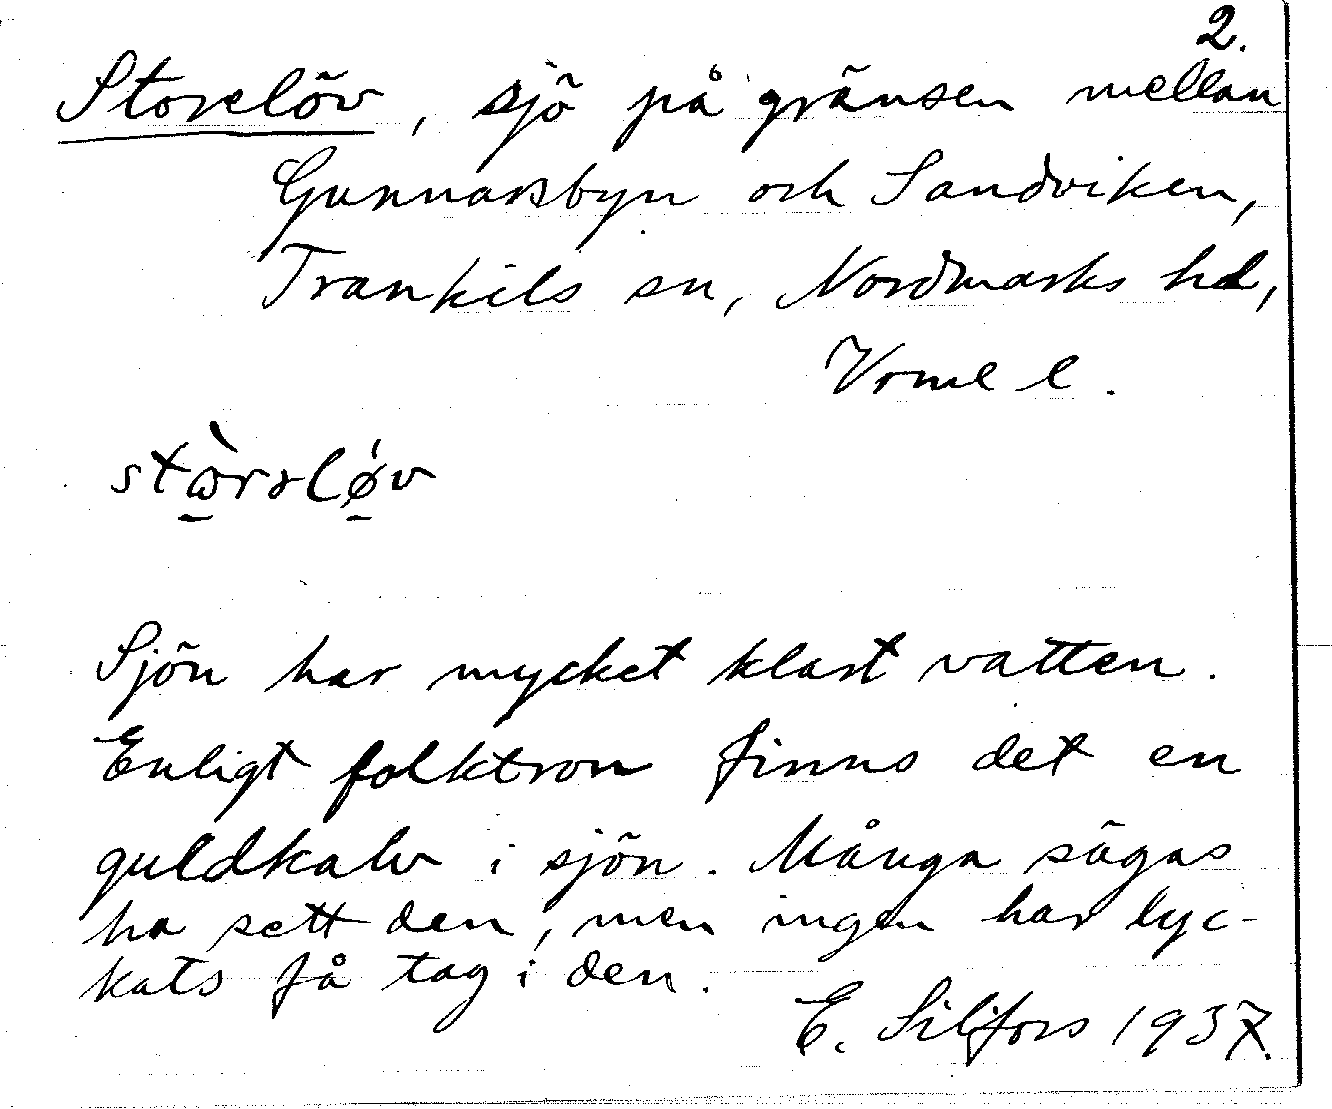 2.
Storelöv, sjö på gränsen mellan
Gunnarsbyn och Sandviken,
Trankils sn, Nordmarks hd,
Vrml l.
stὼrəlǿv
Sjön har mycket klart vatten.
Enligt folktron finns det en
guldkalv i sjön. Många sägas
ha sett den, men ingen har lyc-
kats få tag i den.
E. Silfors 1937.